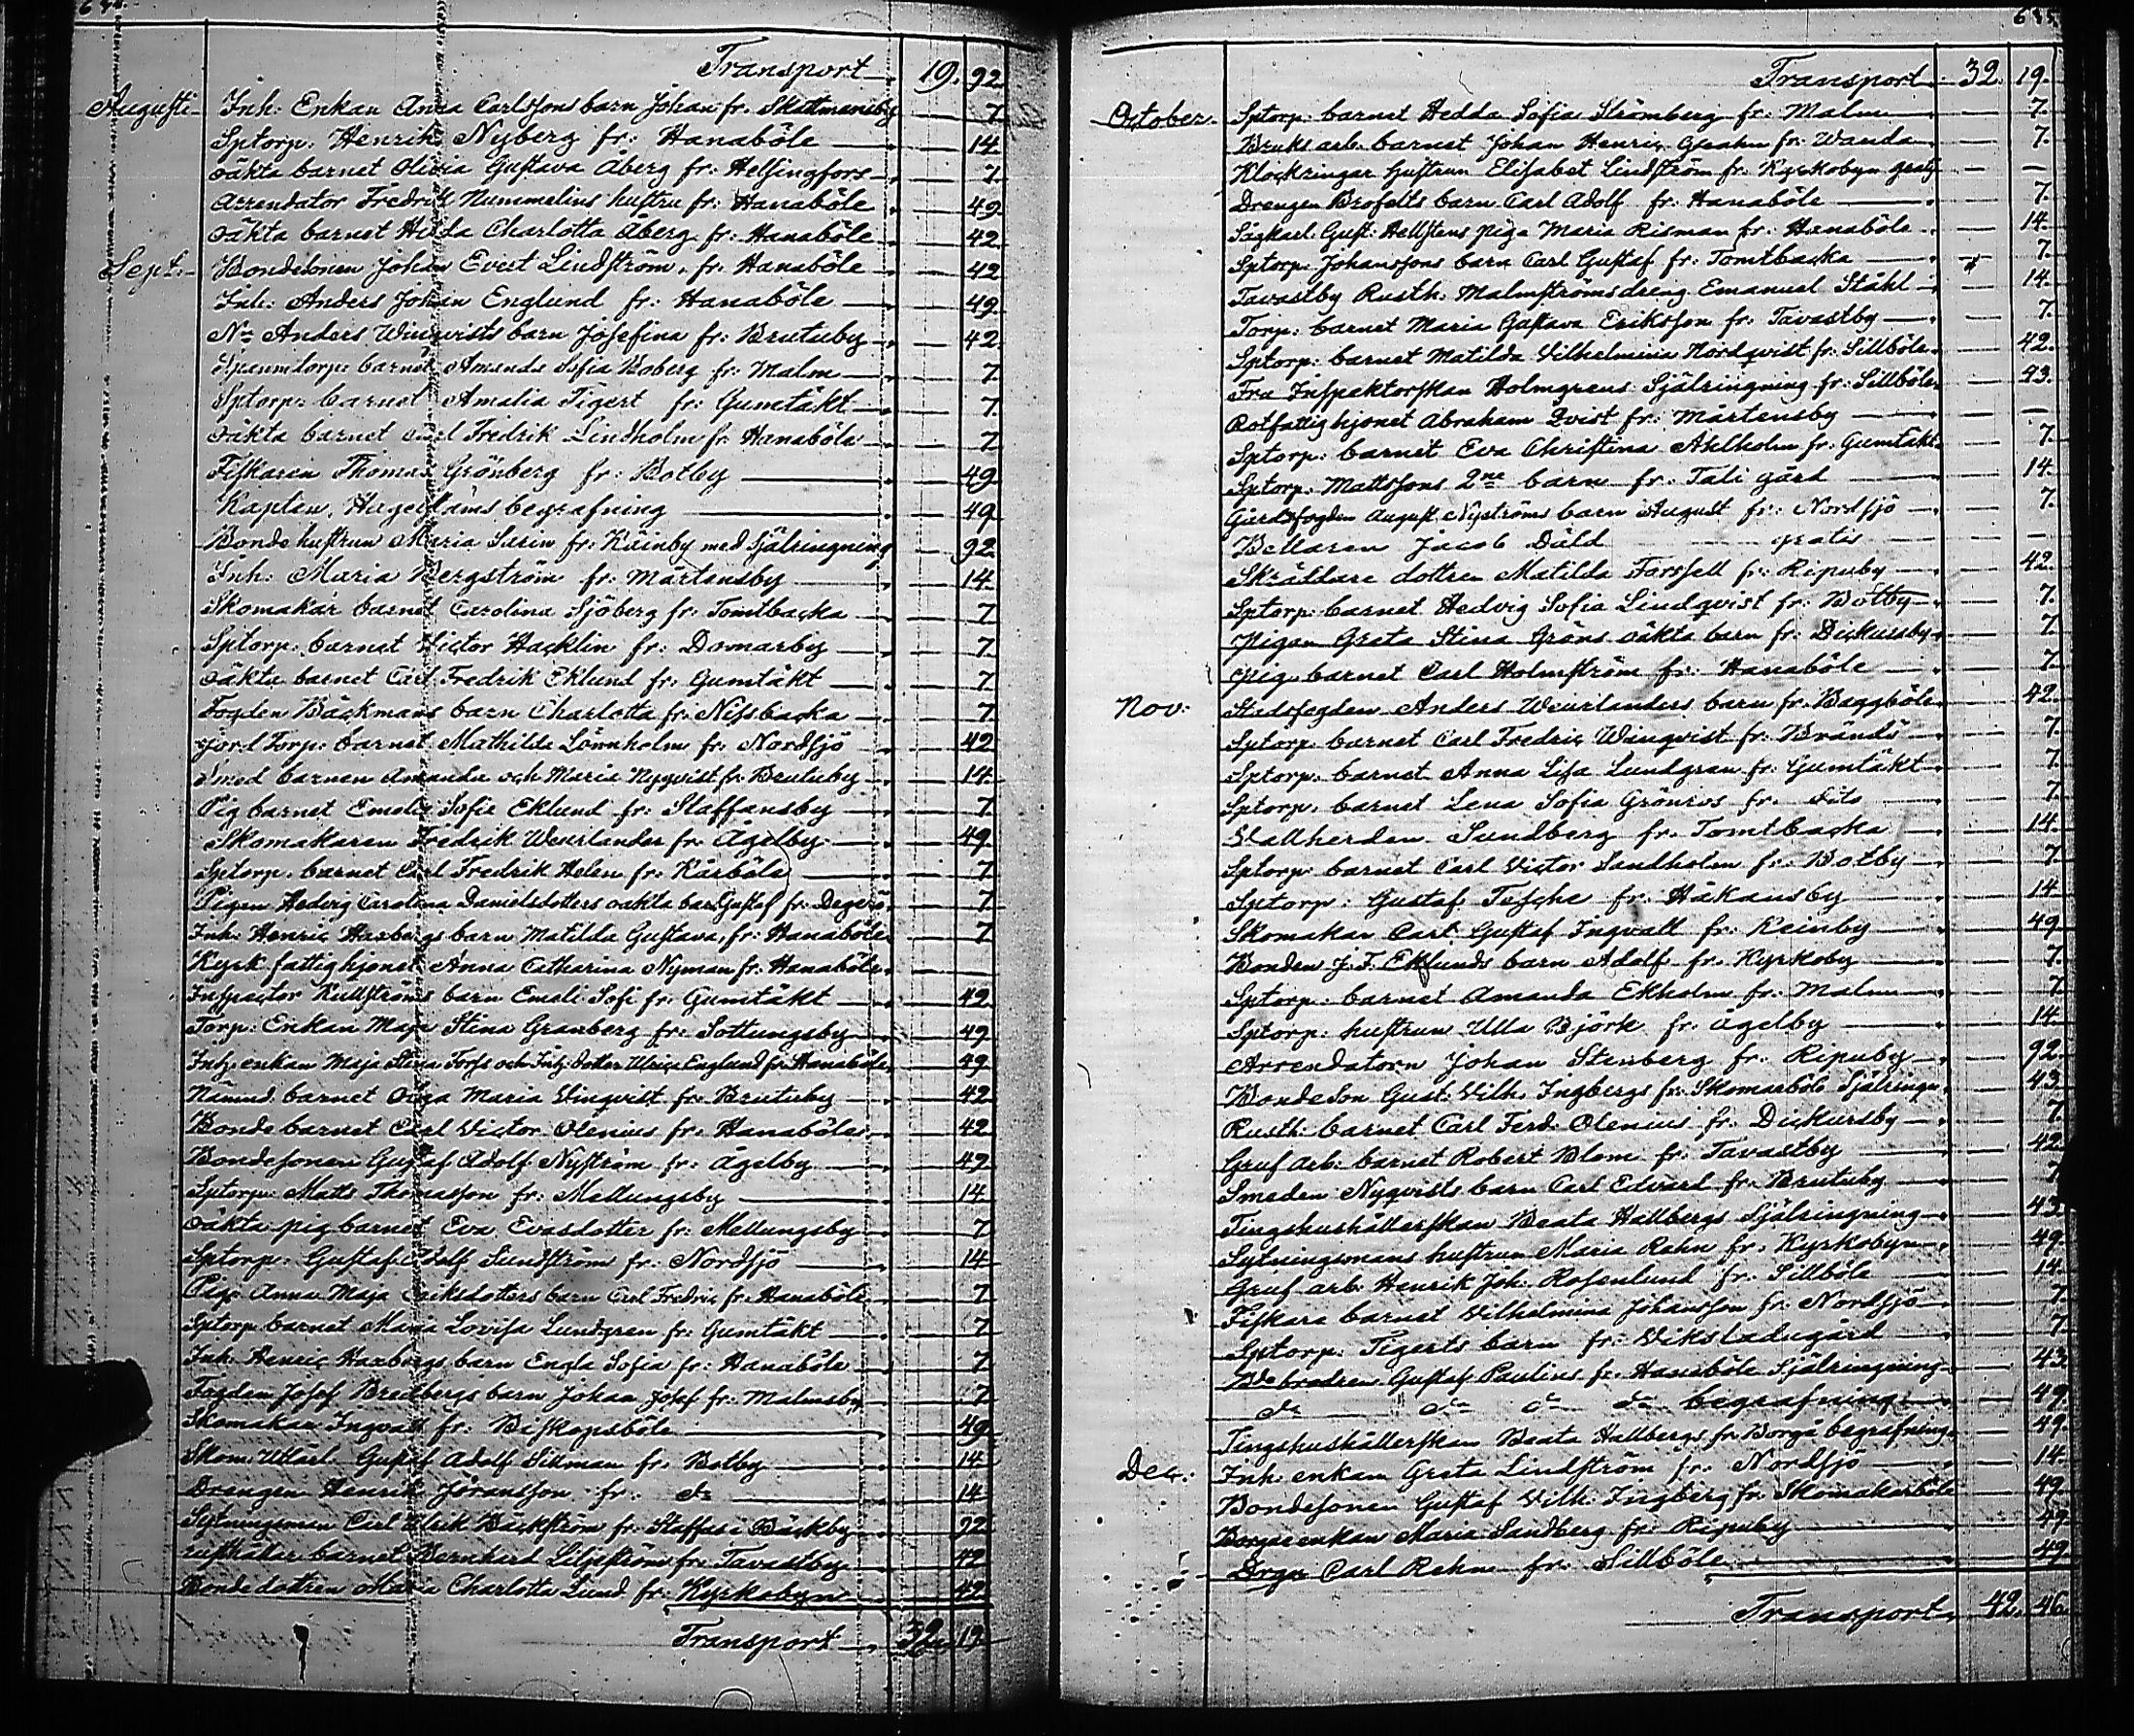 Transport 19. 92
Augusti Inh: Enkan Anna Carlssons barn Johan fr. Skattmansby 7
Sptorp. Henrik Nyberg fr: Hanaböle 14
oäkta barnet Olivia Gustava Åberg fr: Helsingfors 7
Arrendator Fredrik Nummelins hustru fr: Hanaböle 49
oäkta barnet Hilda Charlotta Åberg fr: Hanaböle 42
Sept. Bondesonen Johan Evert Lindström, fr. Hanaböle 42
Inh: Anders Johan Englund fr: Hanaböle 49
Nm Anders Winqvists barn Josefina fr: Brutuby 42
barnet Amanda Sofia Boberg fr: Malm 7
Sptorp. barnet Amalia Tigert fr: Gumtäkt 7
oäkta barnet Carl Fredrik Lindholm fr Hanaböle 7
Fiskaren Thomas Grönberg fr: Botby 49
Kapten begrafning 49
Bonde hustrun Maria Sarin fr: Käinby med Själringning 92
Inh: Maria Bergström fr: Mårtensby 14
Skomakar barnet Carolina Sjöberg fr: Tomtbacka 7
Sptorp. barnet Victor Hacklin fr: Domarby 7
oäkta barnet Carl Fredrik Eklund fr: Gumtäkt 7
Fogden Bäckmans barn Charlotta fr: Nissbacka 7
jord Torp: barnet Mathilda Lönnholm fr: Nordsjö 42
Smed barnen Amanda och Maria Nyqvist fr. Brutuby 14
Pig barnet Emelie Sofie Eklund fr: Staffansby 7
Skomakaren Fredrik Weurlander fr: Ågelby 49
Sptorp. barnet Carl Fredrik Helen fr: Kårböle 7
Pigan Hedvig Carolina Danielsdotters oäkta barn Gustaf fr: Degerö 7
Inh: Henric Haxbergs barn Matilda Gustava, fr: Hanaböle 7
Kyrk fattighjonet Anna Catharina Nyman fr: Hanaböle
Inspector Kullströms barn Emeli Sofi fr: Gumtäkt 42
Torp: Enkan Maja Stina Granberg fr: Sottungsby 49
Inh: enkan Maja Stina Forss och Inh: dotter Ulrica Englund fr: Hanaböle 49
Nämnd. barnet Olga Maria Vinqvist fr: Brutuby 42
Bonde barnet Carl Victor Olenius fr: Hanaböle 42
Bondesonen Gustaf Adolf Nyström fr: Ågelby 49
Sptorp: Matts Thomasson fr: Mellungsby 14
oäkta pig barnet Eva Evasdotter fr: Mellungsby 7
Sptorp: Gustaf Adolf Sundström fr: Nordsjö 14
Piga Anna Maja Eriksdotters barn Carl Fredric fr: Hanaböle 7
Sptorp barnet Maria Lovisa Lundgren fr: Gumtäkt 7
Inh: Henric Haxbergs barn Engla Sofia fr: Hanaböle 7
Fogden Josef Bredbergs barn Johan Josef fr: Malmsby 7
Skomakar Ingvall fr: Biskopsböle 49
Skom. Gustaf Adolf Sillman fr: Botby 14
Drengen Henrik Jöransson fr: do 14
Sytningsman Carl Ulrik Bäckström fr: Staffas i Bäckby 92
barnet Bernhard Liljeström fr: Tavastby 42
Bondedottren Maria Charlotta Lund fr: Kyrkobyn 42
Transport 32. 19
685
Transport 32. 19.
October. Sptorp: barnet Hedda Sofia Strömberg fr: Malm 7.
Bruks arb. barnet Johan Henric fr: Wanda 7.
Klockringar hustrun Elisabet Lindström fr: Kyrkobyn gratis —
Drengen Brofelts barn Carl Adolf fr: Hanaböle 7.
Sågkarl: Gust: Hellstens piga Maria Risman fr: Hanaböle 14.
Sptorp: Johanssons barn Carl Gustaf fr: Tomtbacka 7.
Tavastby Rusth: Malmströms dreng Emanuel Ståhl 14.
Torp: barnet Maria Gustava Eriksson fr: Tavastby 7.
Sptorp: barnet Matilda Vilhelmina Nordqvist fr: Sillböle 42.
Fru Inspektorskan Holmgrens Själringning fr: Sillböle 43.
Rotfattighjonet Abraham Qvist fr: Mårtensby —
Sptorp: barnet Eva Christina Ahlholm fr: Gumtäkt 7.
Sptorp: Mattssons 2ne barn fr: Tali gård 14.
Gårdsfogden August Nyströms barn August fr: Nordsjö 7.
Jacob Däld gratis —
Skräddare dottren Matilda Forssell fr: Ripuby 42.
Sptorp: barnet Hedvig Sofia Lindqvist fr: Botby 7.
Pigan Greta Stina Gröns oäkta barn fr: Dickursby 7.
Pig barnet Carl Holmström fr: Hanaböle 7
Nov: Stadsfogden Anders Weurlanders barn fr: Baggböle 42.
Sptorp: barnet Carl Fredric Winqvist fr: Brändö 7.
Sptorp: barnet Anna Lisa Lundgren fr: Gumtäkt 7.
Sptorp. barnet Lena Sofia Grönros fr. dito 7.
Vallherden Sundberg fr. Tomtbacka 14.
Sptorp: barnet Carl Victor Sandholm fr: Botby 7.
Sptorp: Gustaf Tesche fr: Håkansby 14
Skomakar Carl Gustaf Ingvall fr: Keinby 49
Bonden J. F. Eklunds barn Adolf fr. Kyrkoby 7.
Sptorp: barnet Amanda Ekholm fr: Malm 7
Sptorp: hustrun Ulla Björk fr: Ågelby 14.
Arrendatorn Johan Stenberg fr. Ripuby 92.
Bondeson Gust. Vilh. Ingbergs fr: Skomarböle Själringn. 43.
Rusth: barnet Carl Ferd: Olenius fr: Dickursby 7.
Gruf arb: barnet Robert Blom fr: Tavastby 42.
Smeden Nyqvists barn Carl Edvard fr. Brutuby 7
Tingshushållerskan Beata Hallbergs Själringning 43.
Sytningsmans hustrun Maria Rehn fr. Kyrkobyn 49.
Gruf arb: Henrik Joh: Rosenlund fr: Sillböle 14.
Fiskare barnet Vilhelmina Johansson fr: Nordsjö 7.
Sptorp: Tigerts barn fr: Viksladugård 7.
Bdebrodren Gustaf Paulins fr. Hanaböle Själringning 43.
do do do do begrafning 49.
Tingshushållerskan Beata Hallbergs fr. Borgå begrafning 49.
Dec: Inh: enkan Greta Lindström fr. Nordsjö 14.
Bondesonen Gustaf Vilh: Ingberg fr. Skomakarböle 49.
enkan Maria Sandberg fr: Ripuby 49.
Carl Rehn fr. Sillböle 49
Transport 42. 46.